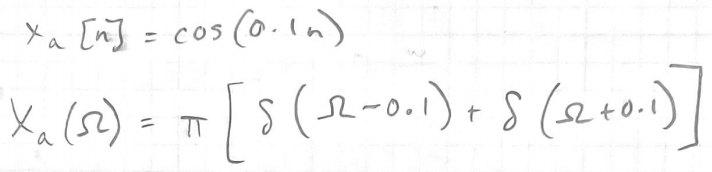 xₐ[n] = cos(0.1n)
Xₐ(Ω) = π[δ(Ω-0.1) + δ(Ω+0.1)]